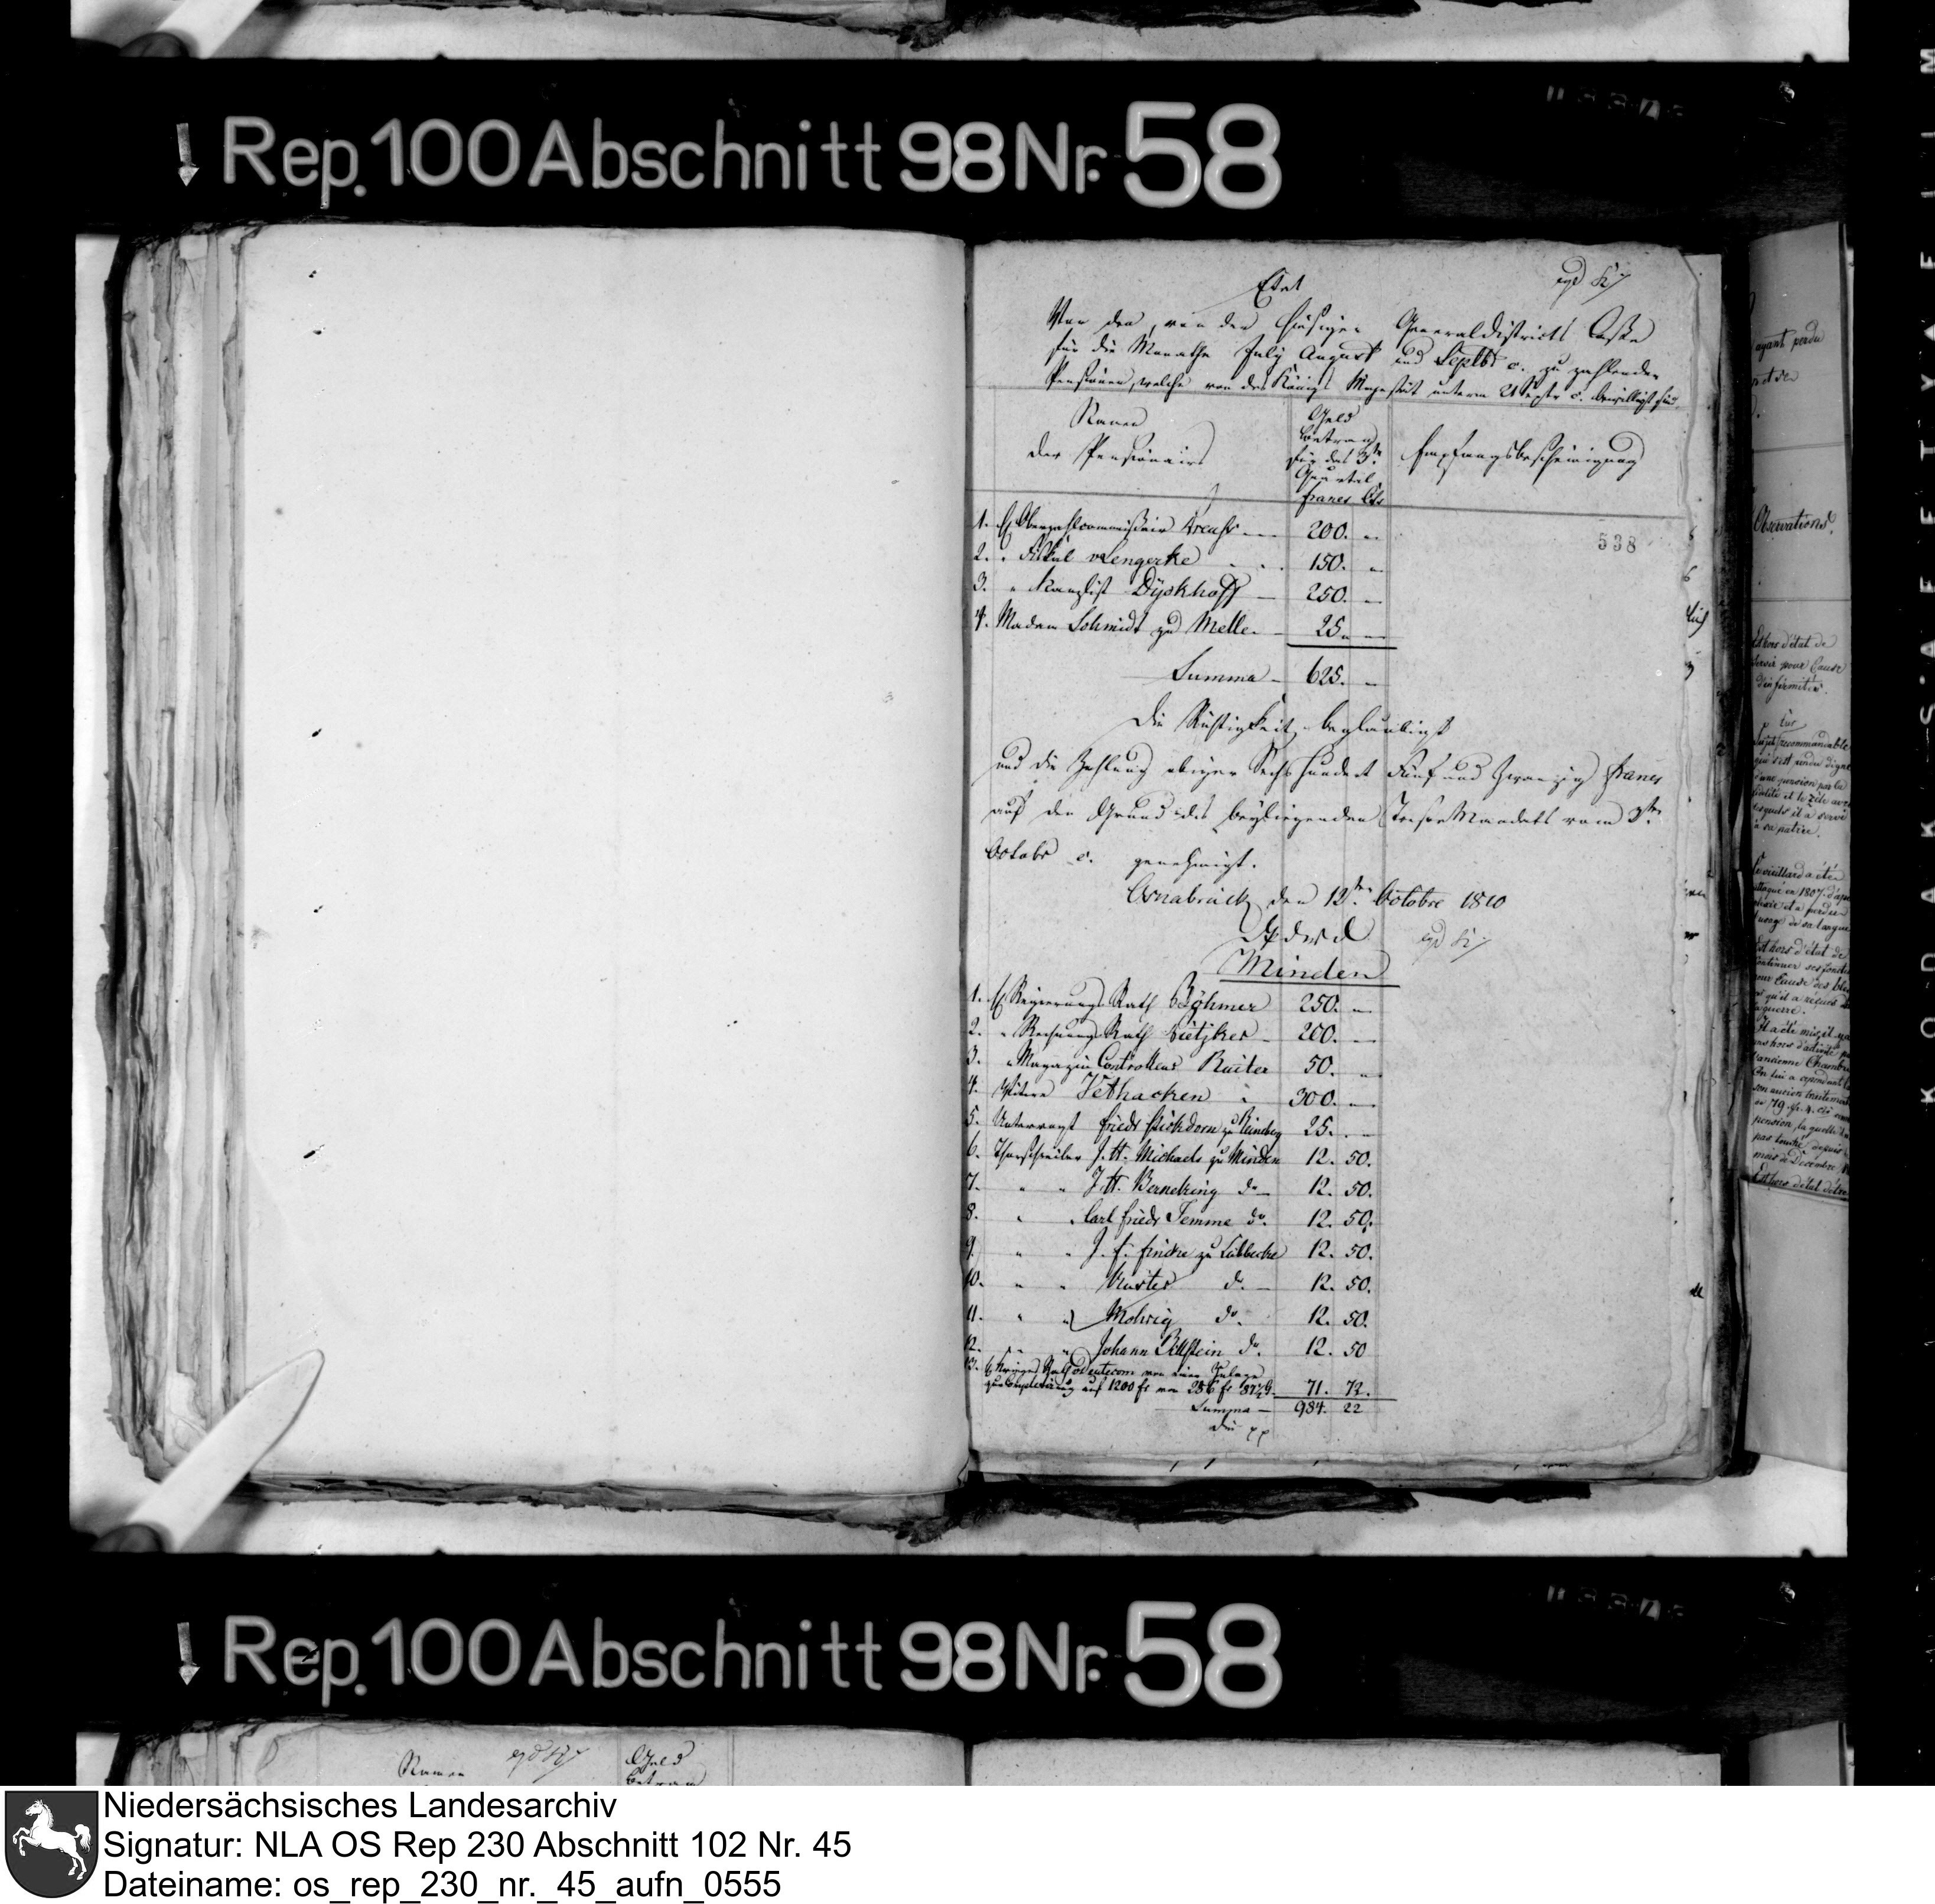 Rep. 100 Abschnitt 98 Nr. 58
Etat
Von den, von der hiesigen Generaldistricts Casse
für die Monathe July August und Septbr c. zu zahlenden
Pensionen, welche von des Königs Majestät unterm 21 Septr c. bewilligt sind
Namen
der Pensionairs
Geld
betrag
für das 3te
Quartal
francs Cts
Empfangsbescheinigung
538
1. H Oberzahlcommissair 200.
2. " Fiskal v Lengerke 150.
3. " Kanzlist Dyckhoff 250.
4. Madam Schmidt zu Melle 25.
Summa 625.
Die Richtigkeit beglaubigt
und die Zahlung obiger Sechs hundert Fünf und Zwanzig francs
auf den Grund des beyliegenden Mandats vom 3ten
Octobr c. genehmigt.
Osnabrück den 12ten Octobre 1810
Minden
1. H Regierungs Rath Böhmer 250.
2. " Rechnungs Rath 200.
3. " Magazin Controlleur Ruiter 50.
4. Witwe Vethacken 300.
5. Untervogt Friedr 25.
6. Thorschreiber J. H. Michaels zu Minden 12. 50.
7. " " J. H. Bernetzing do 12. 50.
8. " " Carl Friedr Temme do 12. 50.
9. " " J. F. Fincke zu Lübbecke 12. 50.
10. " " Kuster do 12. 50.
11. " " Mohrig do 12. 50.
12. " " Johann do 12. 50
13. H Kriegs Rath von einer Zulage
auf 1200 fr von 286 fr 71. 72.
Summa 984. 22
Die pp
ayant perdu
Observations.
Est hors d'état de
servir pour Cause
d'infirmités.
recommandable
qui s'est rendu digne
d'une pension par la
fidélité et le zèle avec
lesquels il a servi
sa patrie.
Ce vieillard a été
attaqué en 1807
l'usage de sa langue
Est hors d'état de
continuer ses fonctions
pour Cause des
qu'il a reçues
guerre.
Il a été mis
hors d'activité
l'ancienne Chambre
On lui a cependant
son ancien traitement
pension, laquelle
pas touchée depuis
mois de Décembre
Est hors d'état d'être
Rep. 100 Abschnitt 98 Nr. 58
Namen
Geld
betrag
KODAK SAFETY FILM
Niedersächsisches Landesarchiv
Signatur: NLA OS Rep 230 Abschnitt 102 Nr. 45
Dateiname: os_rep_230_nr._45_aufn_0555